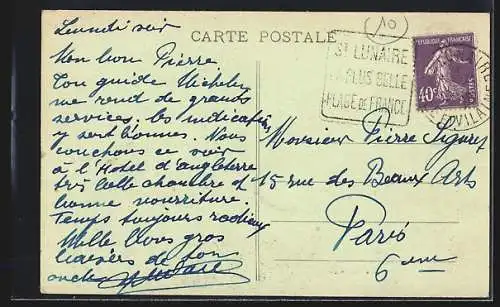 (10)
CARTE POSTALE
Lundi soir
Mon bon Pierre
Ton guide Michelin
me rend de grands
services, les indications
y sont bonnes. Nous
couchons ce soir
à l'Hotel d'angleterre
très belle chambre et
bonne nourriture.
Temps toujours radieux
Mille bons gros
baisers de ton
oncle
ST LUNAIRE
LA PLUS BELLE
PLAGE DE FRANCE
REPUBLIQUE FRANCAISE
40c
POSTES
Monsieur Pierre
15 rue des Beaux Arts
Paris
6 eme